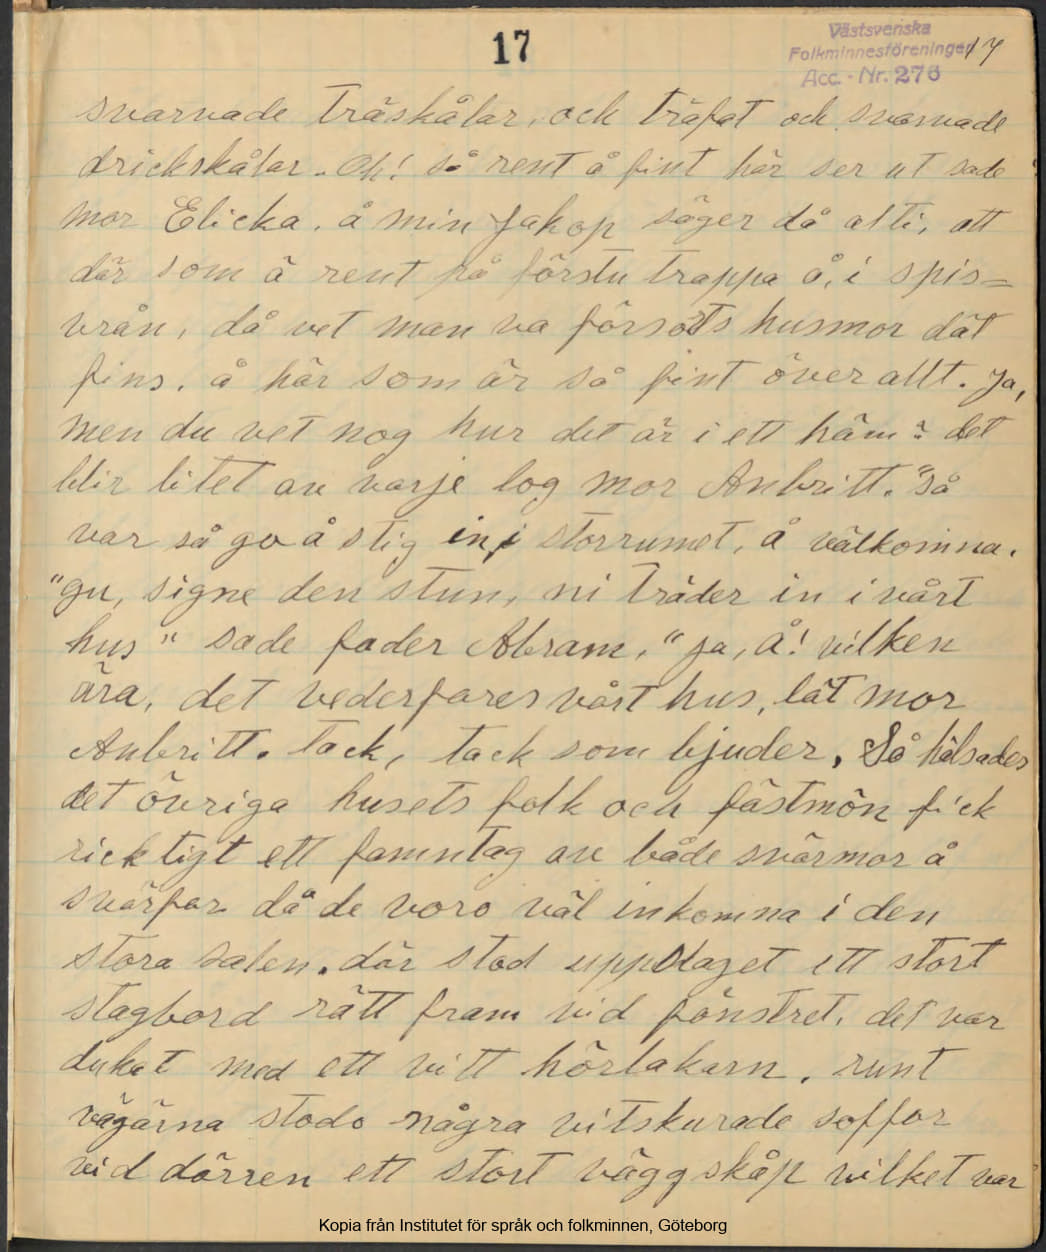 17
Västsvenska
Folkminnesföreningen 17
Acc.-Nr. 276
svarvade träskålar, ock träfat och svarvade
drickskålar. Oh! så rent å fint här ser ut sade
mor Elicka. å min Jakop säger då alti, att
där som ä rent på förstu trappa å, i spis=
vrån, då vet man va försots husmor dät
fins. å här som är så fint över allt. Ja,
men du vet nog hur det är i ett häm? det
blir litet av varje log mor Anbritt. "Så
var så go å stig in i storrumet, å välkomna.
"gu, signe den stun, ni träder in i vårt
hus" sade fader Abram, "ja, å! vilken
ära, det vederfares vårt hus, lät mor
Anbritt. tack, tack som bjuder, Så hälsades
det övriga husets folk och fästmön fick
ricktigt ett famntag av både svärmor å
svärfar då de voro väl inkomna i den
stora salen. där stod uppslaget ett stort
slagbord rätt fram vid fönstret, det var
dukat med ett vitt hörlakarn. runt
vägärna stodo några vitskurade soffor
vid dörren ett stort väggskåp vilket var
Kopia från Institutet för språk och folkminnen, Göteborg